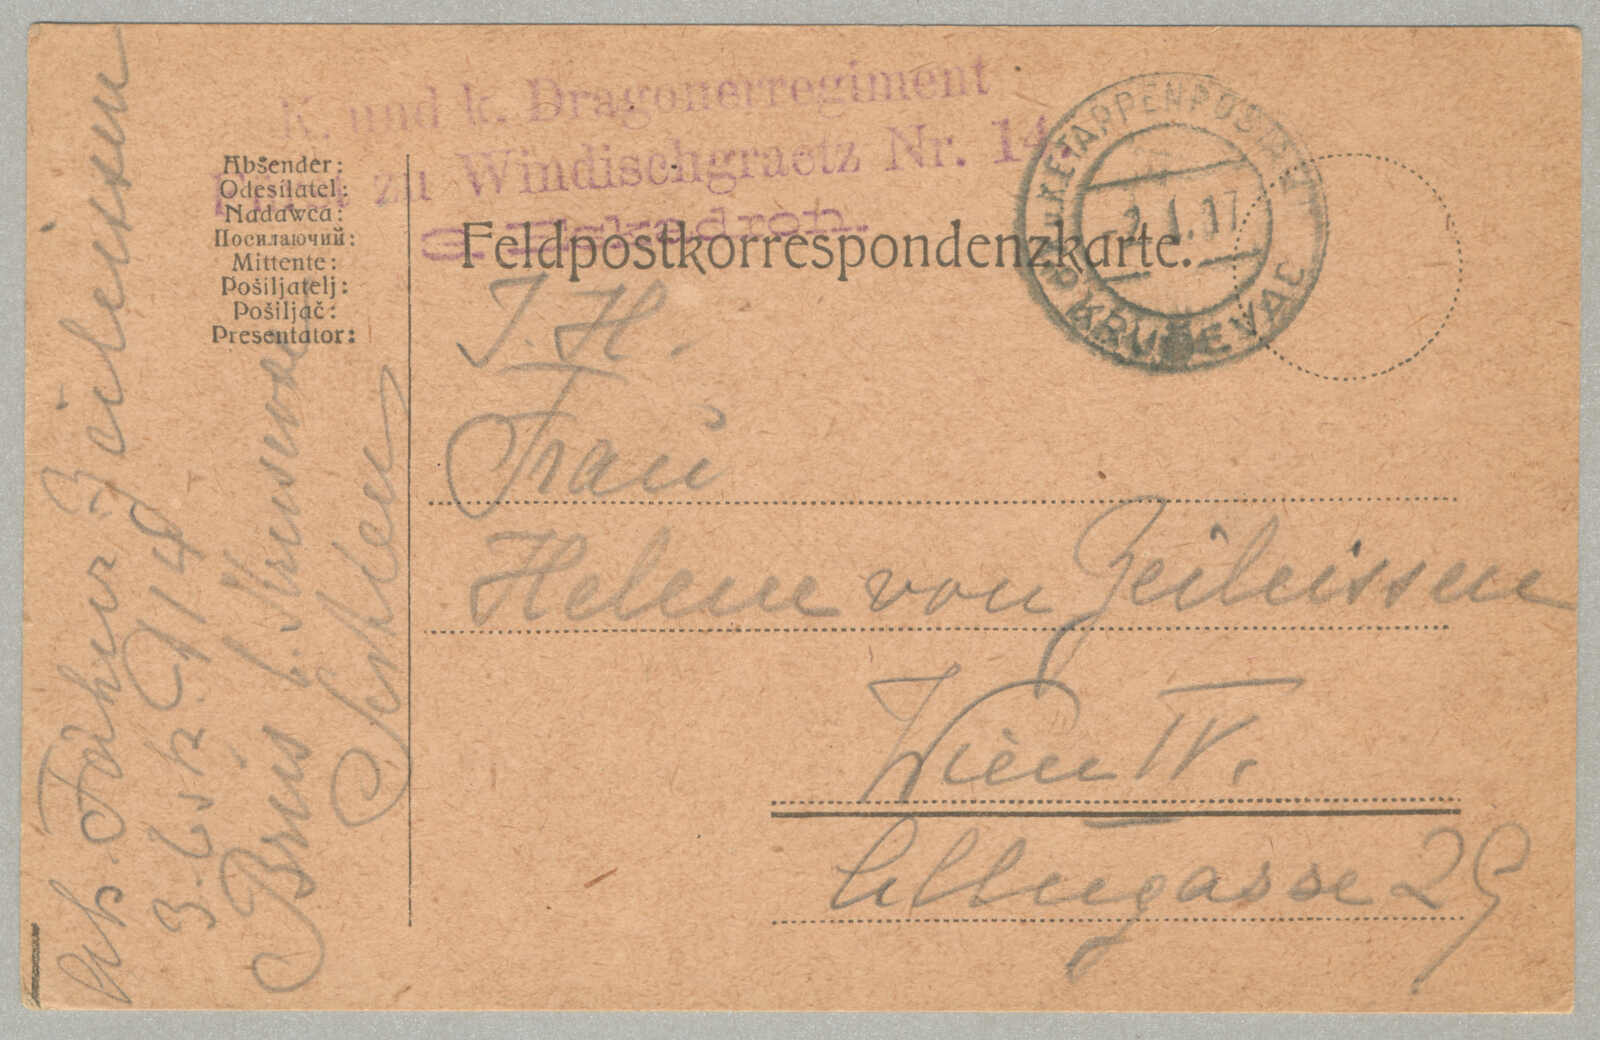 K. und k. Dragonerregiment
Fürst zu Windischgraetz Nr. 14.
Eskadron.
K.u.K. ETAPPENPOSTAMT
2.1.17
KRUŠEVAC
Absender:
Odesílatel:
Nadawca:
Посилаючий:
Mittente:
Pošiljatelj:
Pošiljač:
Presentator:
Feldpostkorrespondenzkarte.
I. H.
Frau
Helene von Zeileissen
Wien IV.
29
Zeileissen
3. Esk. D 14
Serbien